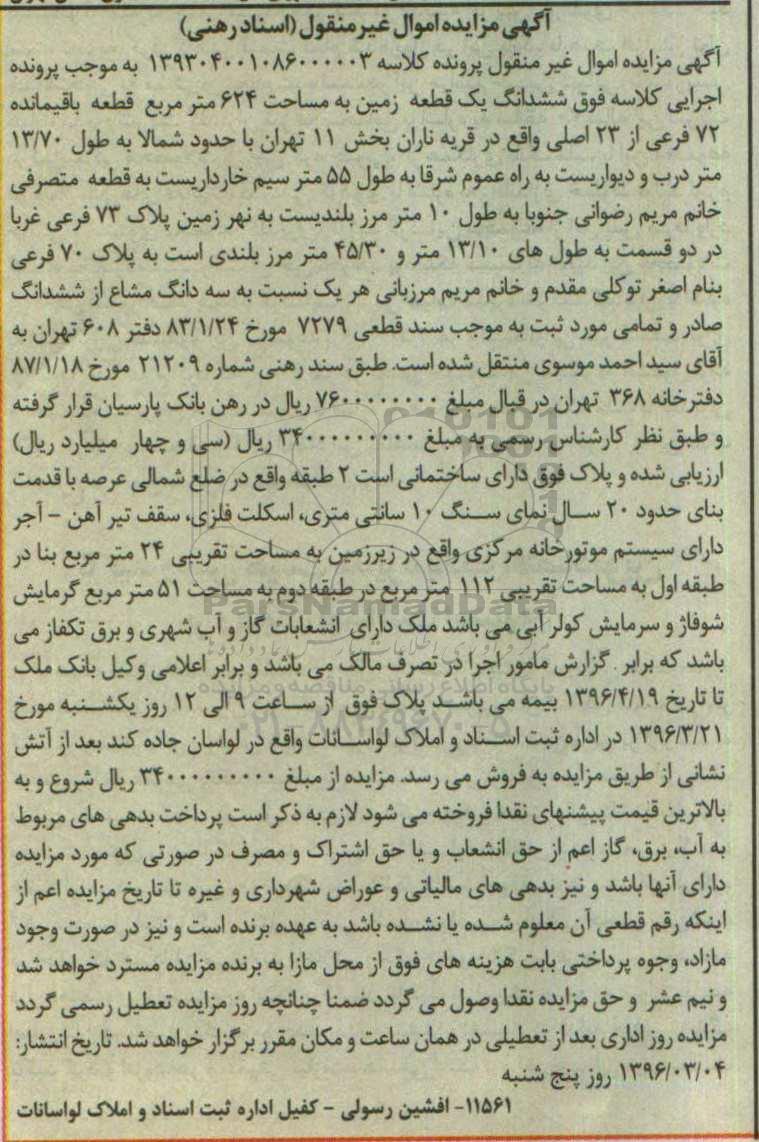 آگهی مزایده اموال غیرمنقول (اسناد رهنی)
آگهی مزایده اموال غیر منقول پرونده کلاسه ۱۳۹۳۰۴۰۰۱۰۸۶۰۰۰۰۰۳ به موجب پرونده
اجرایی کلاسه فوق ششدانگ یک قطعه زمین به مساحت ۶۲۴ متر مربع قطعه باقیمانده
۷۲ فرعی از ۲۳ اصلی واقع در قریه ناران بخش ۱۱ تهران با حدود شمالا به طول ۱۳/۷۰
متر درب و دیواریست به راه عموم شرقا به طول ۵۵ متر سیم خارداریست به قطعه متصرفی
خانم مریم رضوانی جنوبا به طول ۱۰ متر مرز بلندیست به نهر زمین پلاک ۷۳ فرعی غربا
در دو قسمت به طول های ۱۳/۱۰ متر و ۴۵/۳۰ متر مرز بلندی است به پلاک ۷۰ فرعی
بنام اصغر توکلی مقدم و خانم مریم مرزبانی هر یک نسبت به سه دانگ مشاع از ششدانگ
صادر و تمامی مورد ثبت به موجب سند قطعی ۷۲۷۹ مورخ ۸۳/۱/۲۴ دفتر ۶۰۸ تهران به
آقای سید احمد موسوی منتقل شده است. طبق سند رهنی شماره ۲۱۲۰۹ مورخ ۸۷/۱/۱۸
دفترخانه ۳۶۸ تهران در قبال مبلغ ۷۶۰۰۰۰۰۰۰۰ ریال در رهن بانک پارسیان قرار گرفته
و طبق نظر کارشناس رسمی به مبلغ ۳۴۰۰۰۰۰۰۰۰۰ ریال (سی و چهار میلیارد ریال)
ارزیابی شده و پلاک فوق دارای ساختمانی است ۲ طبقه واقع در ضلع شمالی عرصه با قدمت
بنای حدود ۲۰ سال نمای سنگ ۱۰ سانتی متری، اسکلت فلزی، سقف تیر آهن - آجر
دارای سیستم موتورخانه مرکزی واقع در زیرزمین به مساحت تقریبی ۲۴ متر مربع بنا در
طبقه اول به مساحت تقریبی ۱۱۲ متر مربع در طبقه دوم به مساحت ۵۱ متر مربع گرمایش
شوفاژ و سرمایش کولر آبی می باشد ملک دارای انشعابات گاز و آب شهری و برق تکفاز می
باشد که برابر گزارش مامور اجرا در تصرف مالک می باشد و برابر اعلامی وکیل بانک ملک
تا تاریخ ۱۳۹۶/۴/۱۹ بیمه می باشد پلاک فوق از ساعت ۹ الی ۱۲ روز یکشنبه مورخ
۱۳۹۶/۳/۲۱ در اداره ثبت اسناد و املاک لواسانات واقع در لواسان جاده کند بعد از آتش
نشانی از طریق مزایده به فروش می رسد. مزایده از مبلغ ۳۴۰۰۰۰۰۰۰۰۰ ریال شروع و به
بالاترین قیمت پیشنهای نقدا فروخته می شود لازم به ذکر است پرداخت بدهی های مربوط
به آب، برق، گاز اعم از حق انشعاب و یا حق اشتراک و مصرف در صورتی که مورد مزایده
دارای آنها باشد و نیز بدهی های مالیاتی و عوراض شهرداری و غیره تا تاریخ مزایده اعم از
اینکه رقم قطعی آن معلوم شده یا نشده باشد به عهده برنده است و نیز در صورت وجود
مازاد، وجوه پرداختی بابت هزینه های فوق از محل مازا به برنده مزایده مسترد خواهد شد
و نیم عشر و حق مزایده نقدا وصول می گردد ضمنا چنانچه روز مزایده تعطیل رسمی گردد
مزایده روز اداری بعد از تعطیلی در همان ساعت و مکان مقرر برگزار خواهد شد. تاریخ انتشار:
۱۳۹۶/۰۳/۰۴ روز پنج شنبه
۱۱۵۶۱- افشین رسولی - کفیل اداره ثبت اسناد و املاک لواسانات
ParsNamadData